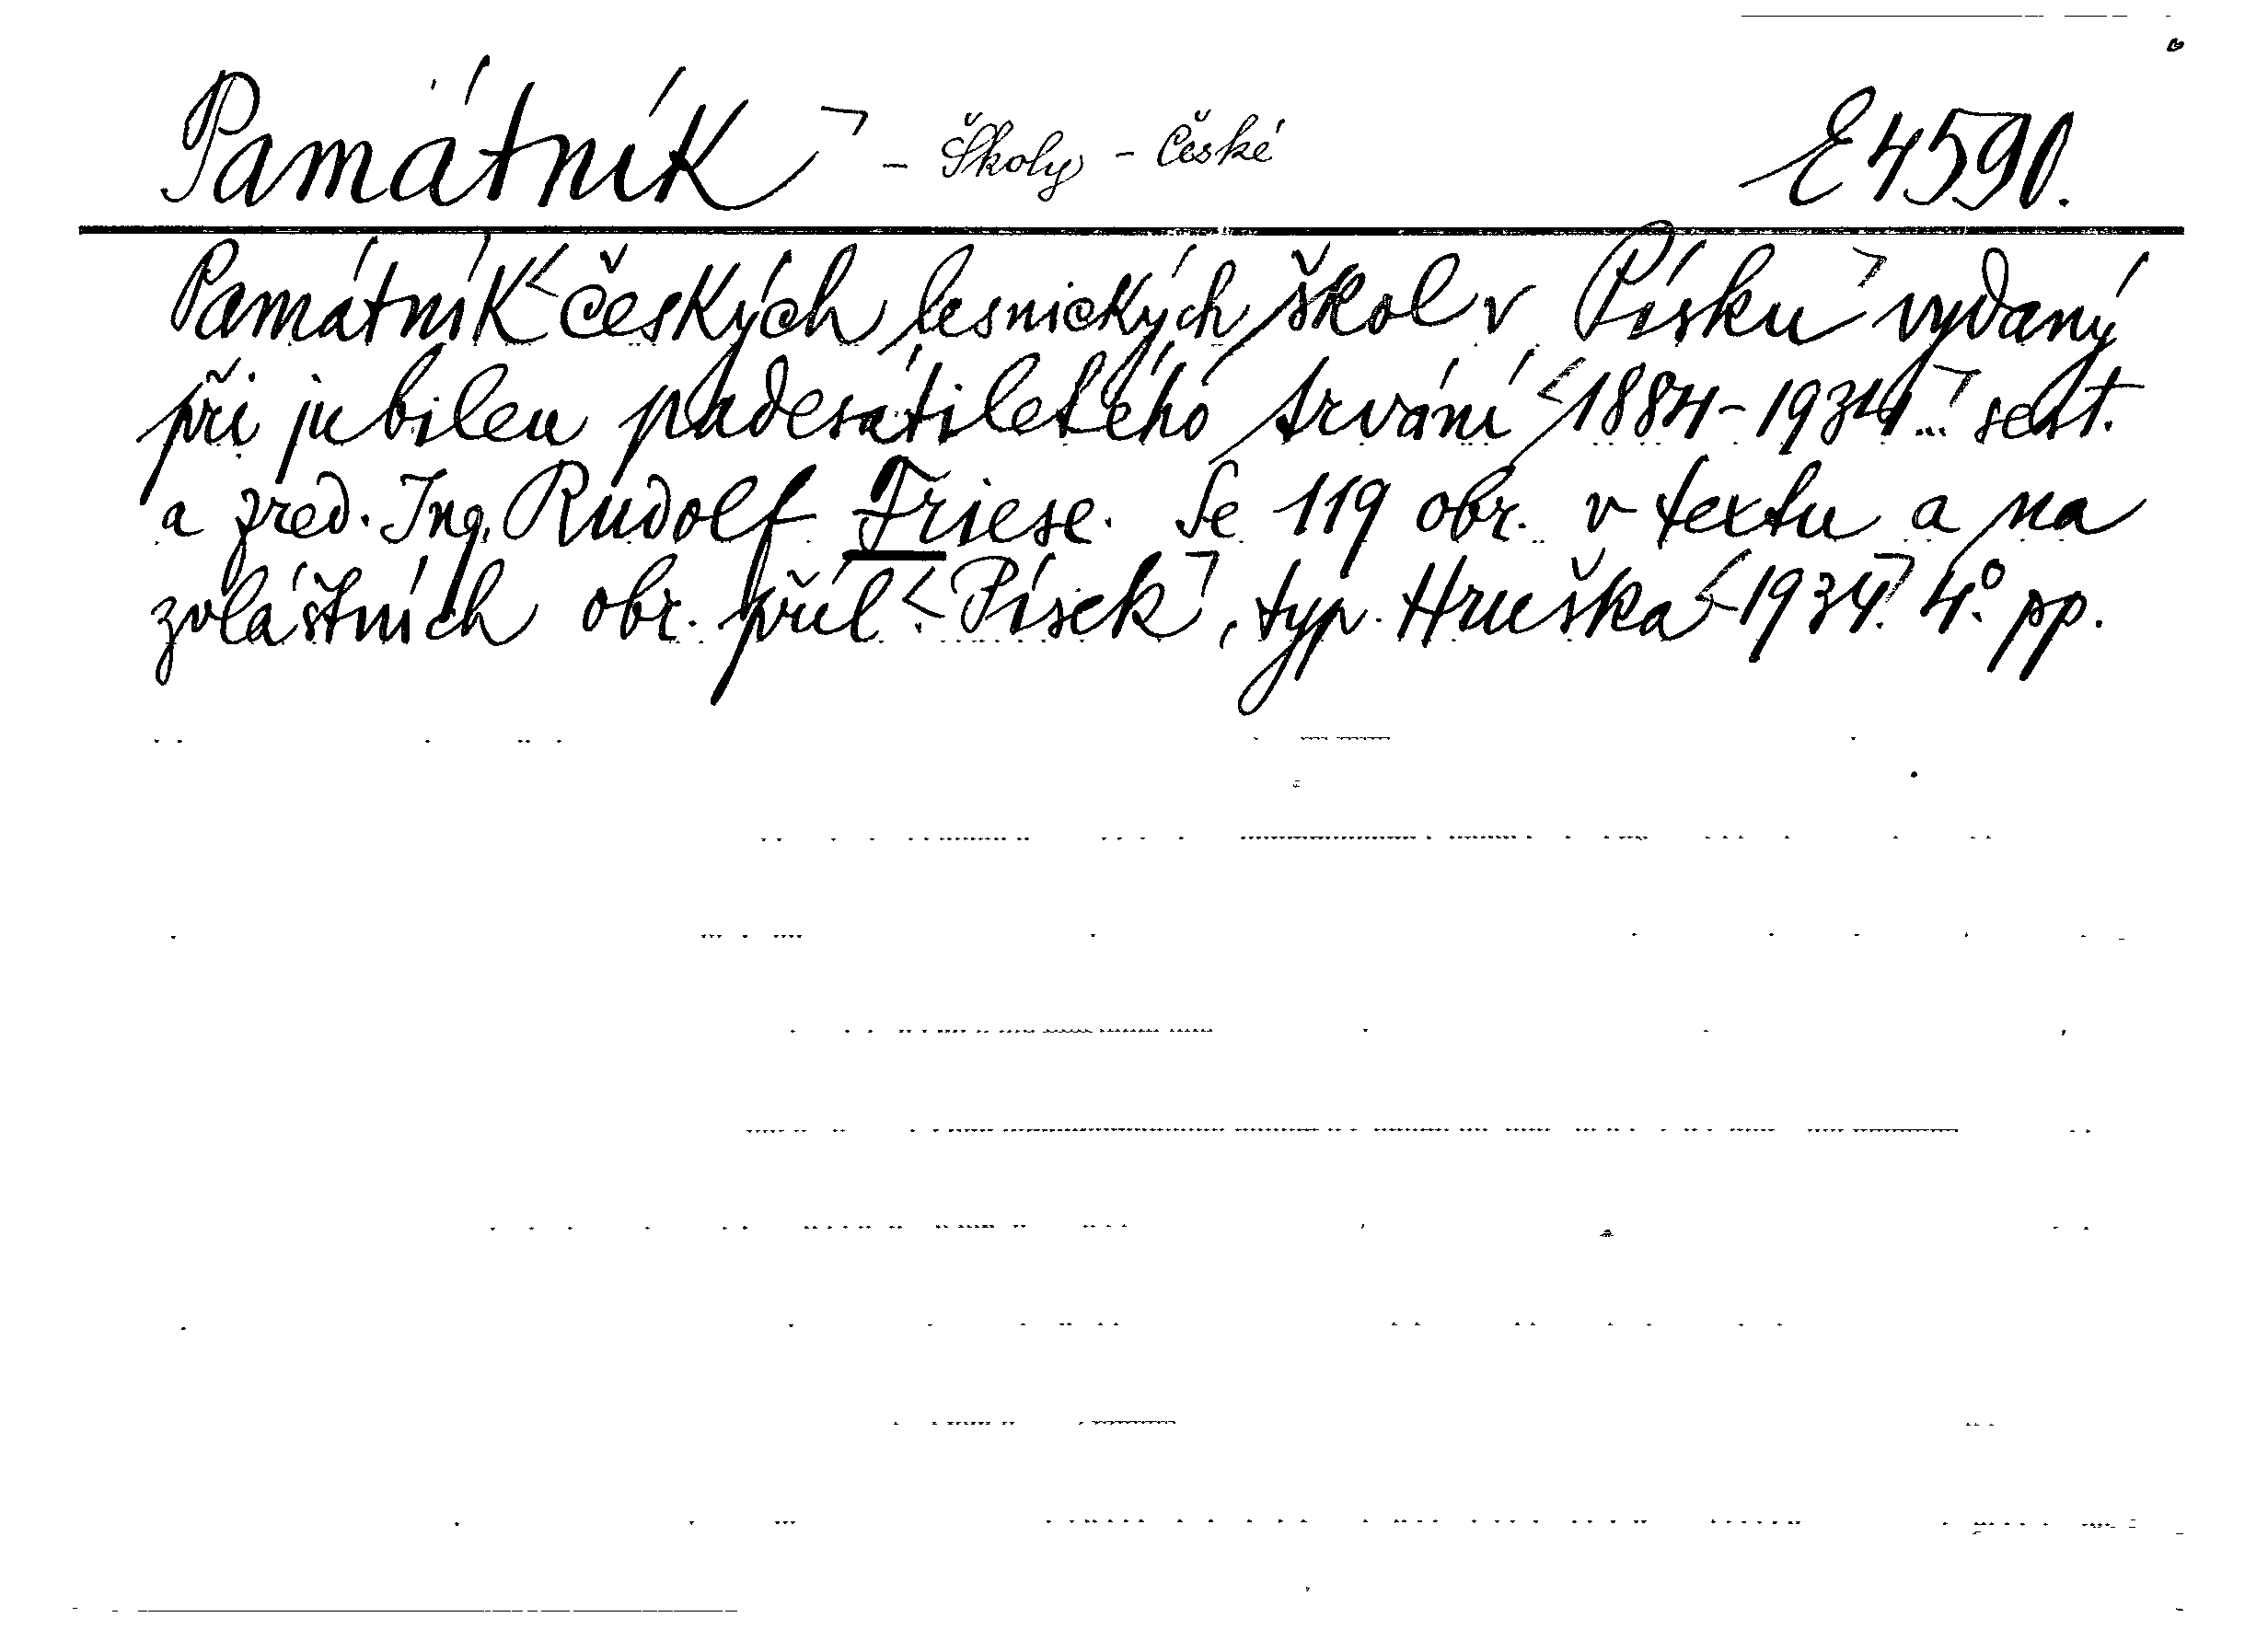 Památník - Školy - České E 4590.
Památník českých lesnických škol v Písku vydaný
při jubileu padesátiletého trvání 1884-1934. sest.
a zred. Ing. Rudolf Friese. Se 119 obr. v textu a na
zvláštních obr. příl. Písek, typ. Hruška 1934. 4° pp.